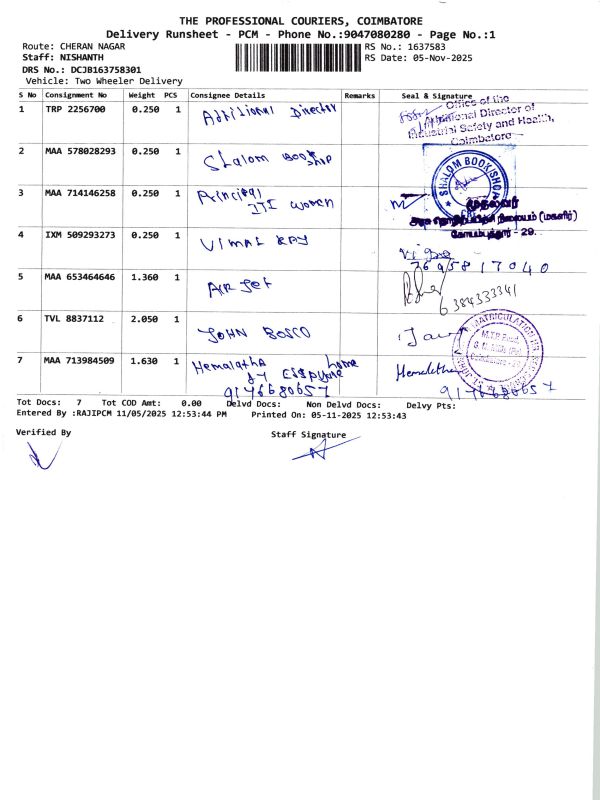 THE PROFESSIONAL COURIERS, COIMBATORE
Delivery Runsheet - PCM - Phone No.:9047080280 - Page No.:1
Route: CHERAN NAGAR
RS No.: 1637583
Staff: NISHANTH
RS Date: 05-Nov-2025
DRS No.: DCJB163758301
Vehicle: Two Wheeler Delivery
S No Consignment No Weight PCS Consignee Details Remarks Seal & Signature
1 TRP 2256700 0.250 1 Additional Director
Office of the
Additional Director of
Industrial Safety and Health,
Coimbatore
2 MAA 578028293 0.250 1 Shalom Book Shop
SHALOM BOOK SHOP
3 MAA 714146258 0.250 1 Principal
ITI Women
முதல்வர்
அரசு தொழிற்பயிற்சி நிலையம் (மகளிர்)
கோயம்புத்தூர் - 29.
4 IXM 509293273 0.250 1 VIMAL
7695817040
5 MAA 653464646 1.360 1 AIR Jet
6384333341
6 TVL 8837112 2.050 1 JOHN BOSCO
MATRICULATION
7 MAA 713984509 1.630 1 Hemalatha home
by
9176680657
Hemalatha
9176680657
Tot Docs: 7 Tot COD Amt: 0.00 Delvd Docs: Non Delvd Docs: Delvy Pts:
Entered By :RAJIPCM 11/05/2025 12:53:44 PM Printed On: 05-11-2025 12:53:43
Verified By
Staff Signature